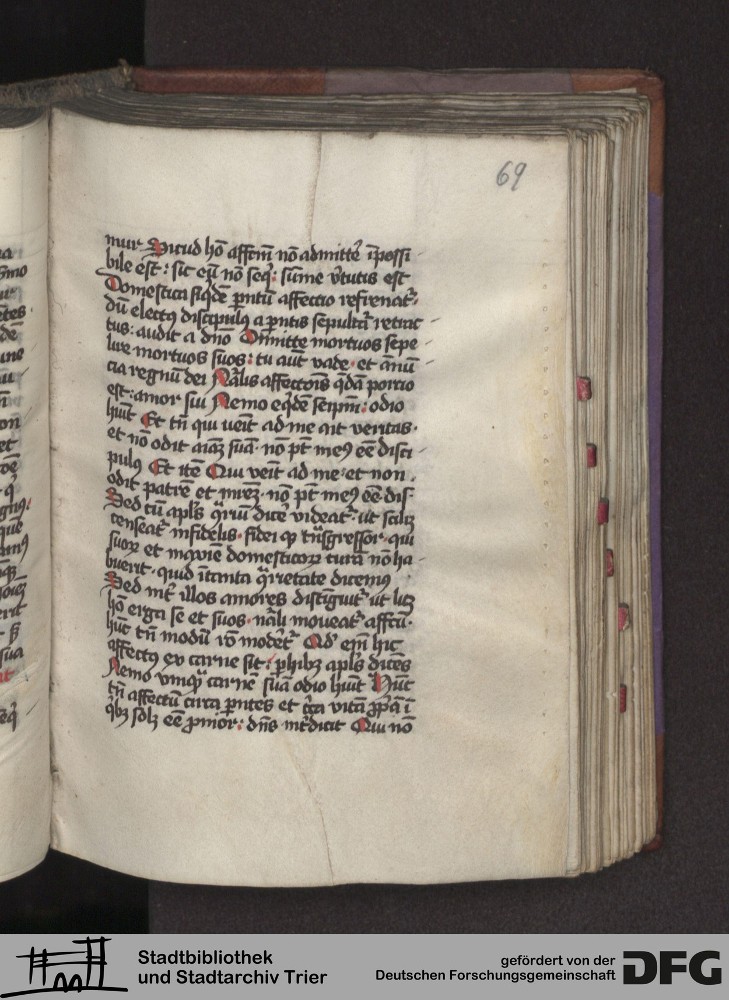 69
mur Sicud hō affcm̄ nō admitte᷑ īpossi
bile est : sic eū nō seq᷑ : sūme v᷑tutis est
Domestica siq̄dē p̄ntū affectio refrenat᷑
dū electꝰ discipulꝰ a p̄ntis sepult᷑a retrac
tus : audit a dn̄o Dimitte mortuos sepe
lire mortuos suos : tu aūt vade · et ānū
cia regnū dei Nālis affectōis q̄dā porcio
est : amor sui Nemo eq̄dē seip̄m : odio
hūit Et tn̄ qui veīt ad me ait veritas ·
et nō odit aīaȝ suā · nō pt̄ meꝰ eē disci
pulꝰ Et itē Qui veīt ad me : et non
odit patrē et mrēȝ · nō pt̄ meꝰ eē dis ·
Sed cū apl̄s q᷑riū dice᷑ videat᷑ · ut scilȝ
censeat᷑ infidelis · fidei qꝫ tn̄sgressor · qui
suoꝝ et maxīe domesticoꝝ curā nō ha
buerit · quid ī tanta q᷑rietate dicemꝰ
Sed int᷑ illos amores distīguit᷑ ut licȝ
hō erga se et suos · nāli moveat᷑ affcū ·
hūc tn̄ modū rō mode᷑t᷑ Qd᷑ em̄ hic
affectꝰ ex carne sit : phibȝ apl̄s dicēs
Nemo vmqꝫ carnē suā odio hūit Hūc
tn̄ affectū circa p̄ntes et c᷑ca vitā ꝓp̄ā ī
q᷑bȝ solȝ eē ꝓnior : dn̄s int᷑dicit Qui nō
Stadtbibliothek
und Stadtarchiv Trier
gefördert von der
Deutschen Forschungsgemeinschaft
DFG